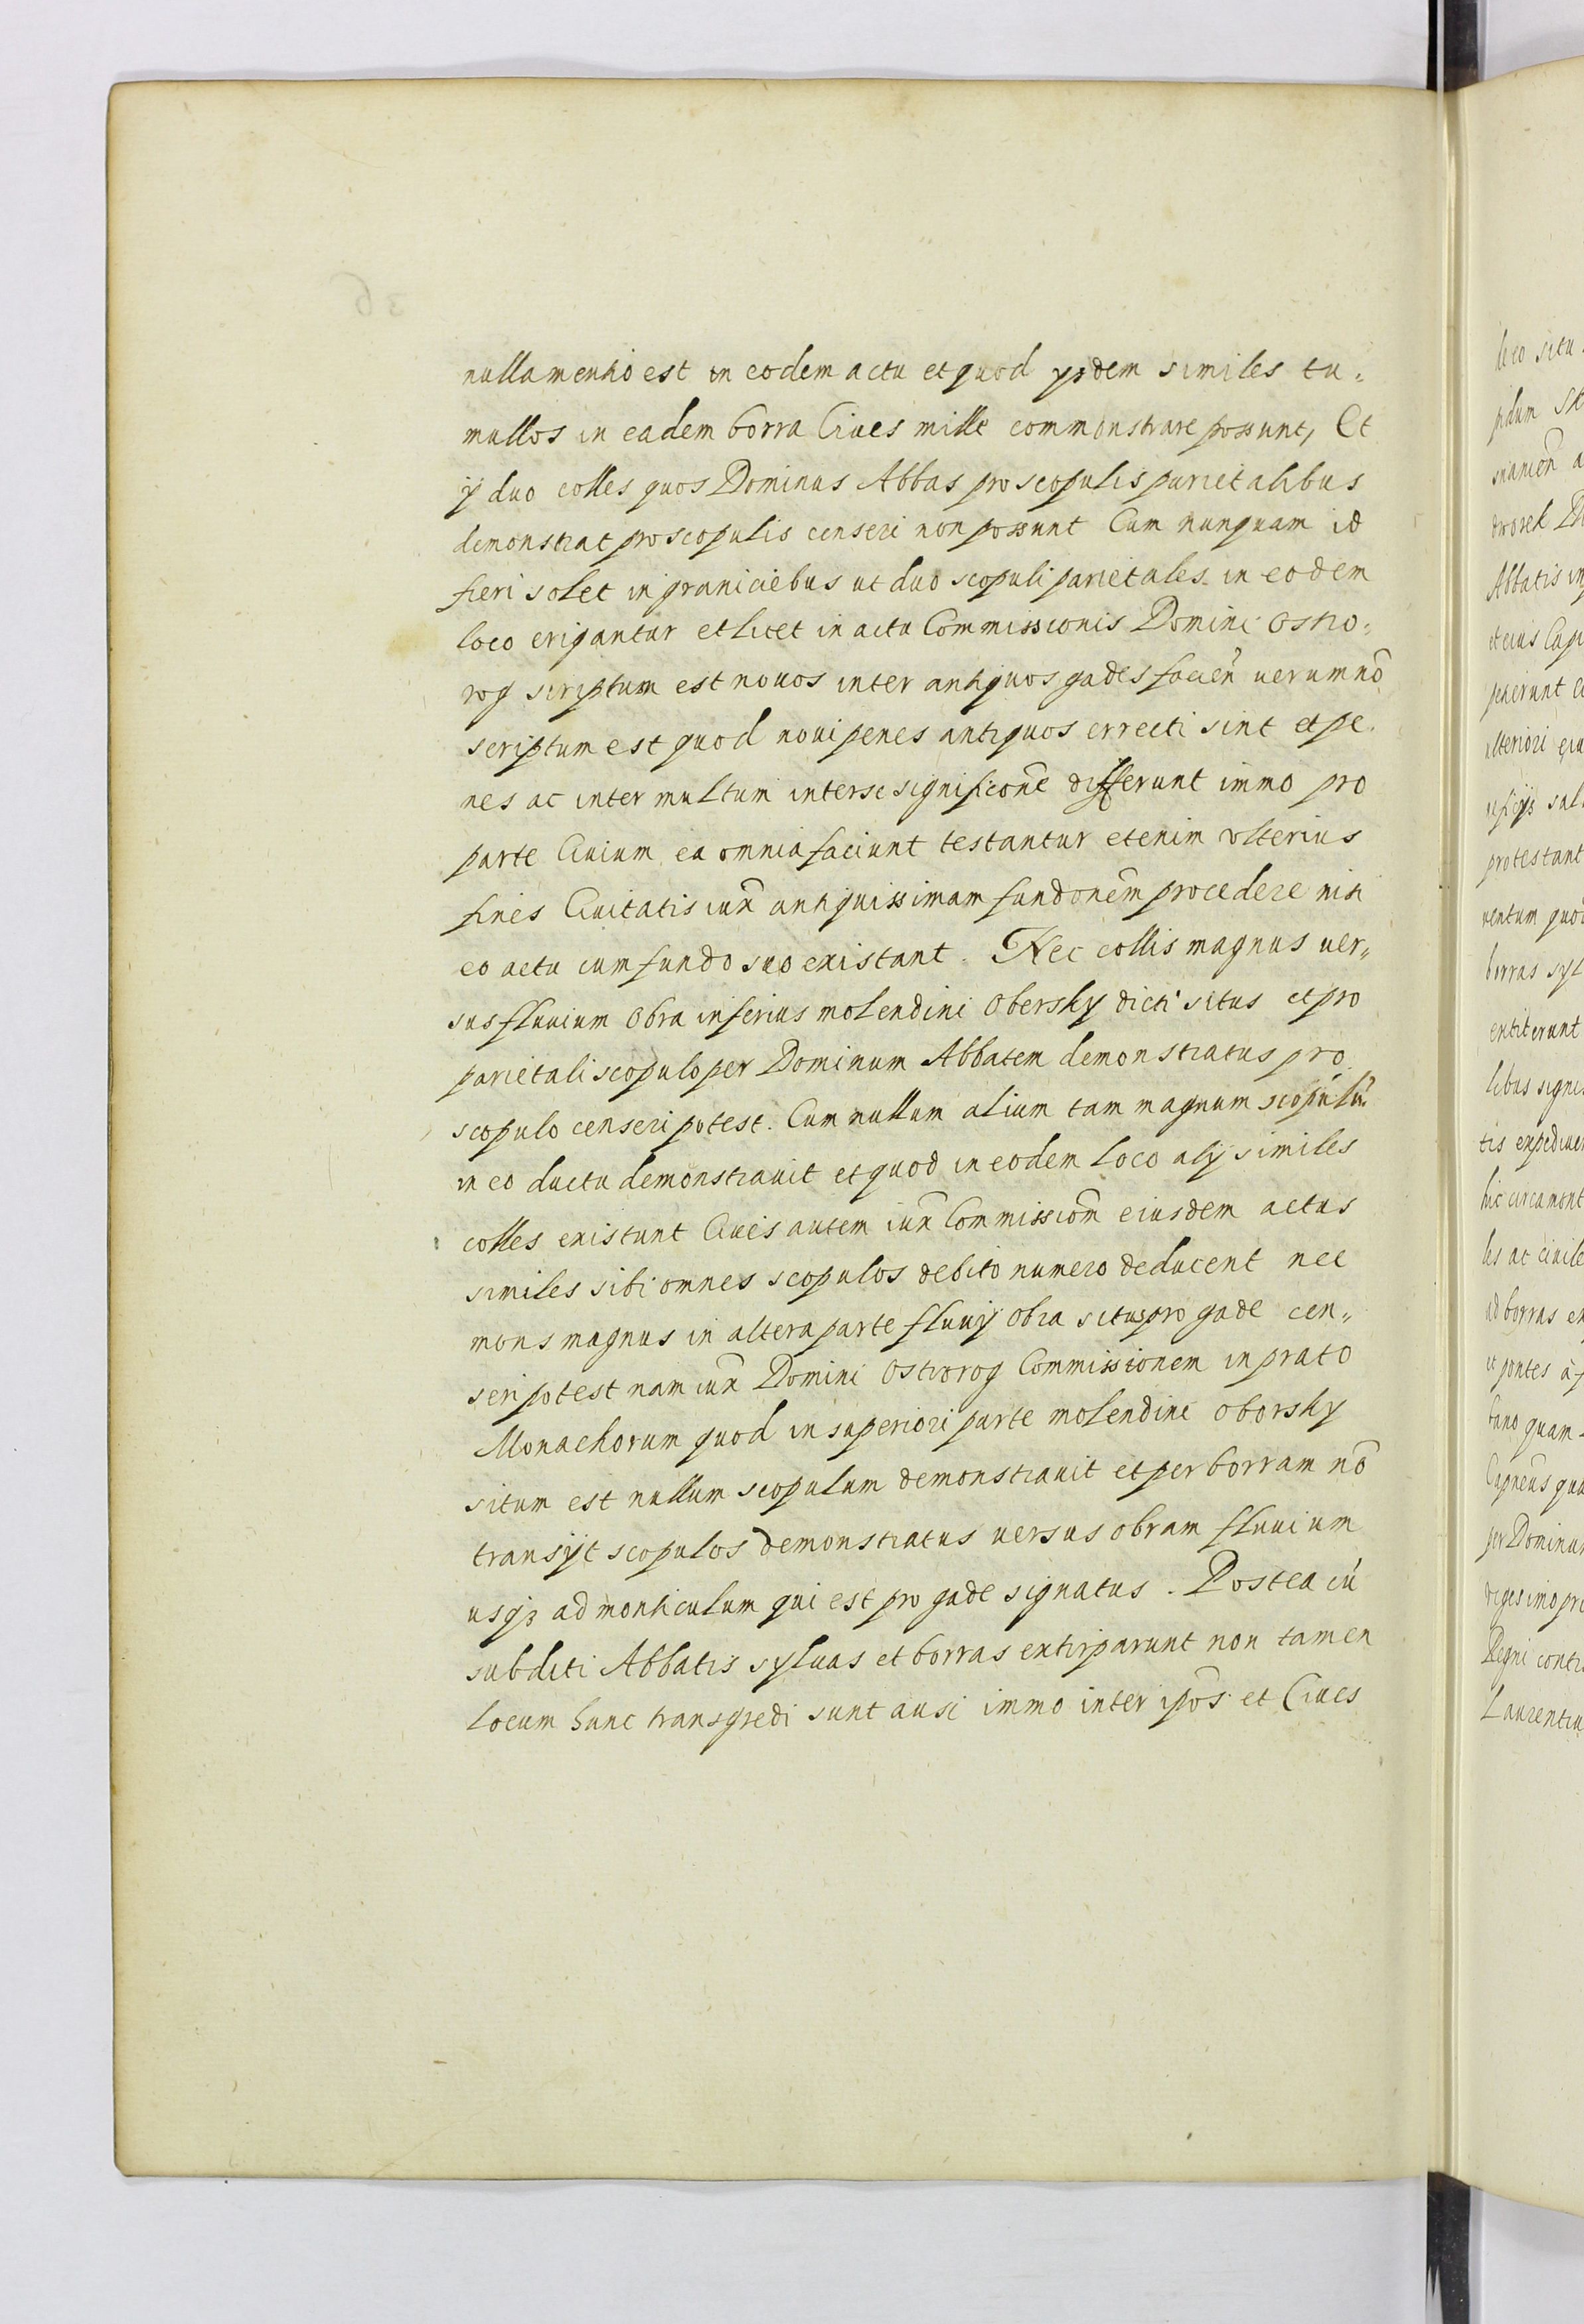 nulla mentio est in eodem actu et quod ysdem similes tu=
mullos in eadem borra Ciues mille commonstrare possunt, Et
ij duo colles quos Dominus Abbas pro scopulis parietalibus
demonstrat pro scopulis censeri non possunt Cum nunquam id
fieri solet in graniciebus ut duo scopuli parietales in eodem
loco erigantur et licet in actu Commissionis Domini Ostro=
rog scriptum est nouos inter antiquos gades facien̄ uerum nō
scriptum est quod noui penes antiquos errecti sint et pe
nes ac inter multum inter se significōne differunt immo pro
parte Ciuium ea omnia faciunt testantur etenim vlterius
fines Ciuitatis iux̄ antiquissimam fundonēm procedere nisi
eo actu cum fundo suo existant. Nec collis magnus uer„
sus fluuium Obra inferius molendini Obersky dicti situs et pro
parietali scopulo per Dominum Abbatem demonstratus pro
scopulo censeri potest. Cum nullum alium tam magnum scopulū
in eo ductu demonstrauit et quod in eodem loco alij similes
colles existunt Ciues autem iux̄ Commissiom̄ eiusdem actus
similes sibi omnes scopulos debito numero deducent nec
mons magnus in altera parte fluuij Obra situs pro gade cen„
seri potest nam iux̄ Domini Ostrorog Commissionem in prato
Monachorum quod in superiori parte molendini Oborsky
situm est nullum scopulum demonstrauit et per borram nō
transijt scopulos demonstratus uersus obram fluuium
usq3 ad monticulum qui est pro gade signatus. Postea cū
subditi Abbatis syluas et borras extirparunt non tamen
locum hunc transgredi sunt ausi immo inter ipōs et Ciues
36
loco situ
Abbatis
ulteriori
protestant
uentum quod
borras syl
extiterunt
libus signis
tis expediuer
hic circa mont
les ac ciuile
ad borras ex
et pontes à
quam
per Dominum
Regni
Laurentiu